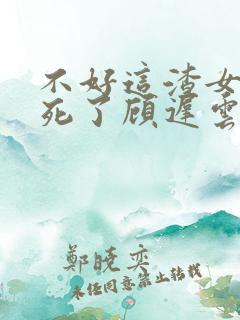 不好這渣女
死了顧遲雲
鄭曉奕
未經同意禁止轉載